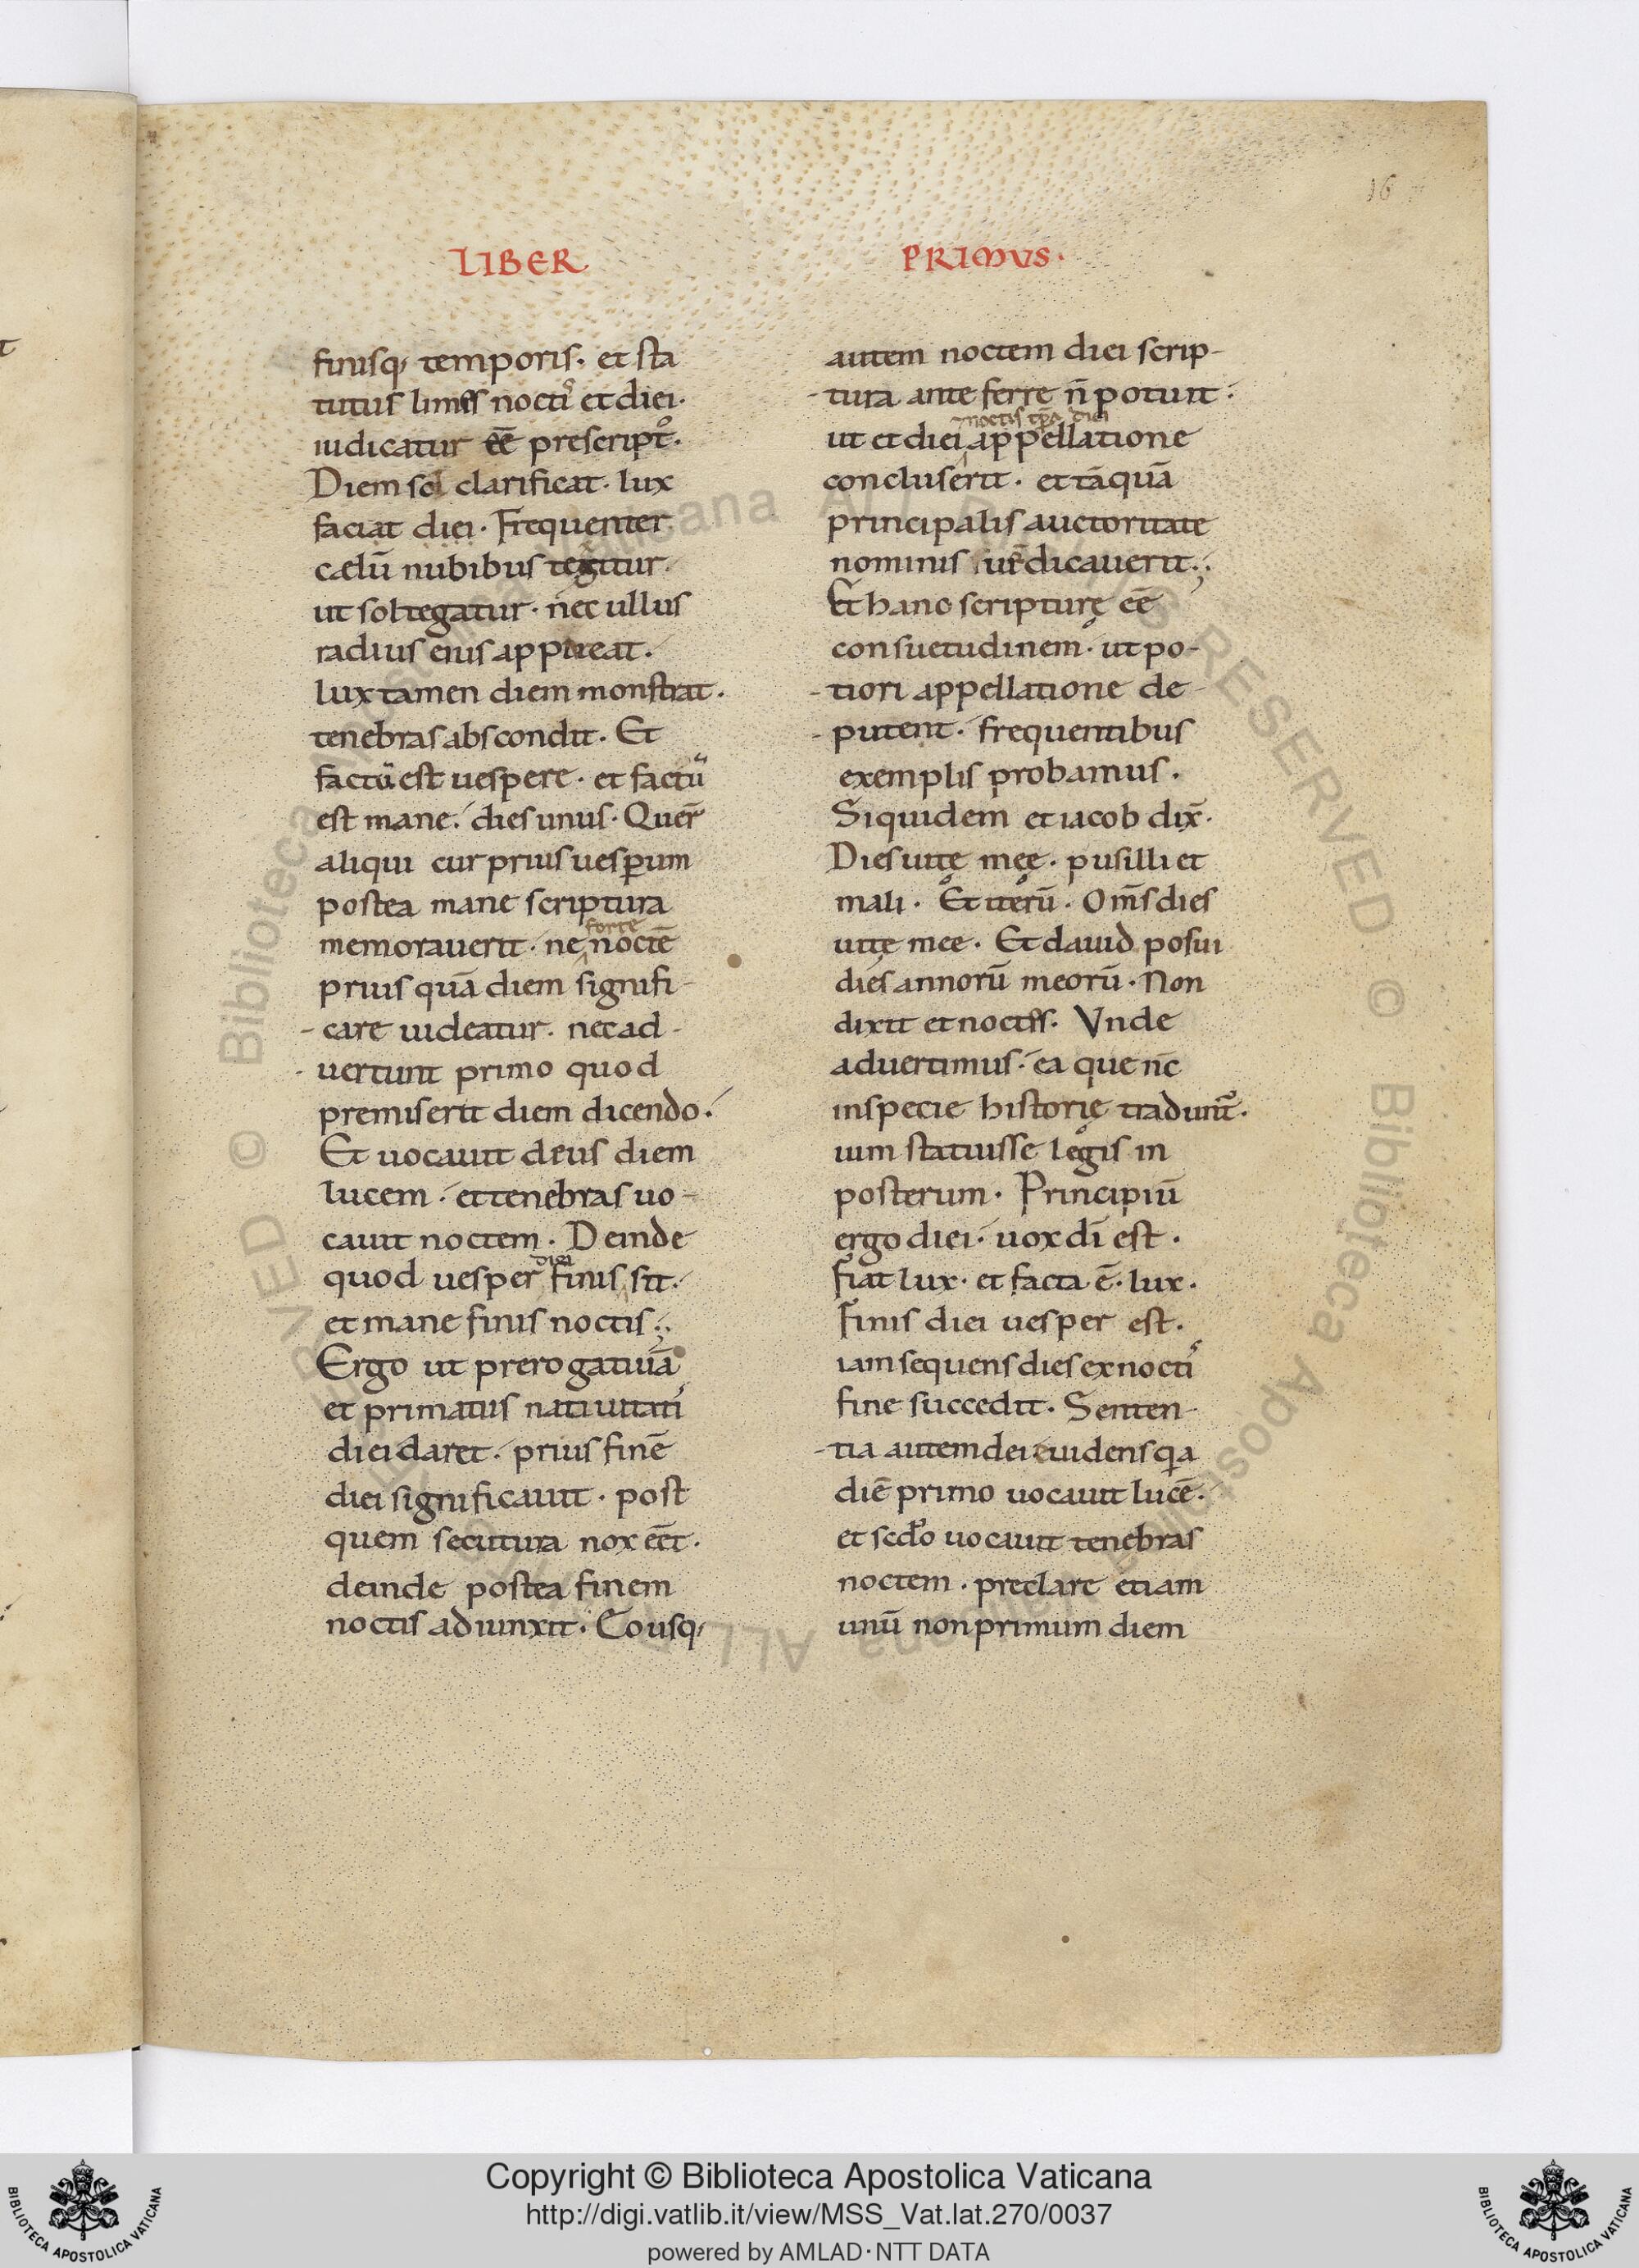 16
LIBER
finisq; temporis. et sta
tutus limes nocti⁹ et diei.
iudicatur eē prescript⁹.
Diem sol clarificat. lux
faciat diei. Frequenter
cælū nubibus tegitur.
ut sol tegatur. nec ullus
radius eius appareat.
lux tamen diem monstrat.
tenebras abscondit. Et
factū est uespere. et factū
est mane. dies unus. Querr̄
aliqui cur prius uesperum
postea mane scriptura
memorauerit. ne forte noctē
prius quā diem signifi-
-care uideatur. nec ad-
-uertunt primo quod
premiserit diem dicendo.
Et uocauit deus diem
lucem. et tenebras uo-
cauit noctem. Deinde
quod uesper finis diei sit.
et mane finis noctis.
Ergo ut prerogatiuā
et primatus natiuitati
diei daret. prius finē
diei significauit. post
quem secutura nox eēt.
deinde postea finem
noctis adiunxit. Cousq;
PRIMVS.
autem noctem diei scrip-
-tura ante ferre n̄ potuit.
ut et diei noctis tp̄a diei appellatione
concluserit. et tāquā
principalis auctoritate
nominis dicauerit.
Et hanc scripturę eē
consuetudinem. ut po-
-tiori appellatione de-
-putent. frequentibus
exemplis probamus.
Siquidem et iacob dix̄.
Dies uitę meę. pusilli et
mali. Et iterū. Om̄s dies
uitę mee. Et dauid posui
dies annorū meorū. Non
dixit et noctes. Vnde
aduertimus. ea que nc̄
in specie historię tradunt̄.
ium statuisse legis in
posterum. Principiū
ergo diei. uox dī est.
fiat lux. et facta ē. lux.
Finis diei uesper est.
iam sequens dies ex nocti⁹
fine succedit. Senten-
-tia autem dei euidens qa
diē primo uocauit lucē.
et scdo uocauit tenebras
noctem. preclare etiam
unū non primum diem
© Biblioteca Apostolica Vaticana ALL RIGHTS RESERVED © Biblioteca Apostolica Vaticana ALL RIGHTS RESERVED
BIBLIOTECA APOSTOLICA VATICANA
Copyright © Biblioteca Apostolica Vaticana
http://digi.vatlib.it/view/MSS_Vat.lat.270/0037
powered by AMLAD·NTT DATA
BIBLIOTECA APOSTOLICA VATICANA